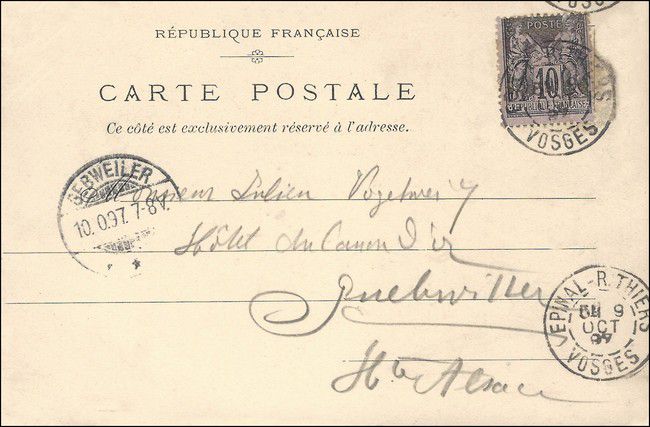 RÉPUBLIQUE FRANÇAISE
CARTE POSTALE
Ce côté est exclusivement réservé à l'adresse.
10
VOSGES
VOSGES
GEBWEILER
10.0.97. 7-8V.
Monsieur Julien
Hôtel du Canon d'or
Guebwiller
Hte Alsace
EPINAL-R. THIERS
9
OCT
97
VOSGES